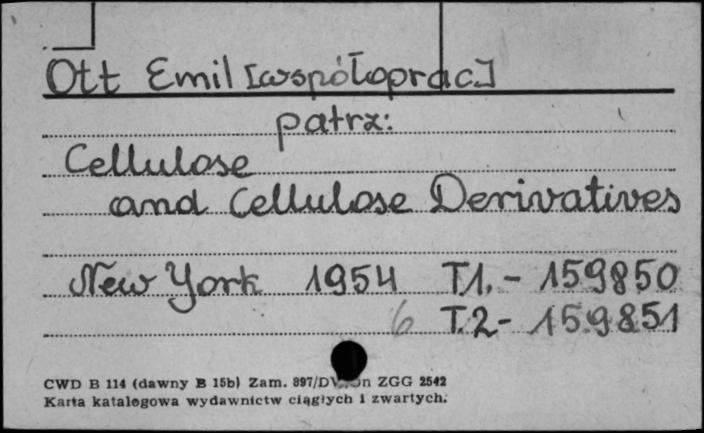 Ott Emil [współoprac.]
patrz:
Cellulose
and Cellulose Derivatives
New York 1954 T.1. - 159850
6 T.2 - 159851
CWD B 114 (dawny B 15b) Zam. 897/ ZGG 2542
Karta katalogowa wydawnictw ciągłych i zwartych.